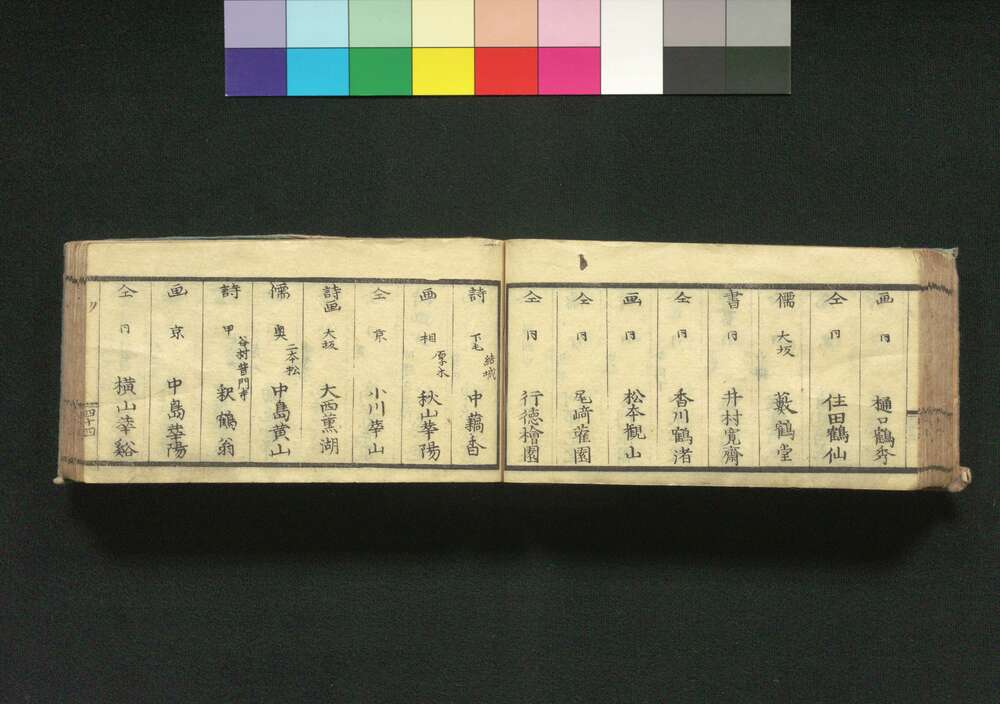 画 同 樋口鶴秀
仝 同 住田鶴仙
儒 大坂 藪鶴堂
書 同 井村寛齋
仝 同 香川鶴渚
画 同 松本観山
仝 同 尾﨑雚園
仝 同 行德檜園
詩 下毛 結城 中藕香
画 相 厚木 秋山華陽
仝 京 小川華山
詩画 大坂 大西薫湖
儒 奥 二本松 中島黄山
詩 甲 谷村普門寺 釈鶴翁
画 京 中島華陽
仝 同 横山華谿
四十四